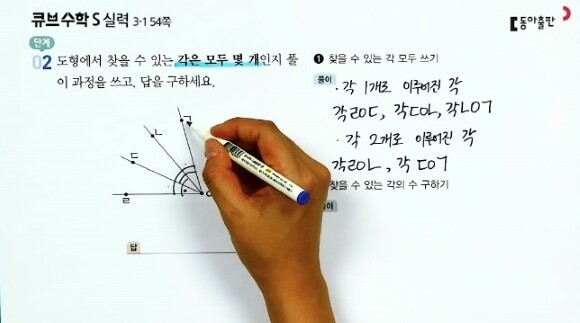 큐브수학S 실력 3-1 54쪽
동아출판
단계
02 도형에서 찾을 수 있는 각은 모두 몇 개인지 풀
이 과정을 쓰고, 답을 구하세요.
❶ 찾을 수 있는 각 모두 쓰기
풀이
· 각 1개로 이루어진 각
각ㄹㅇㄷ, 각ㄷㅇㄴ, 각ㄴㅇㄱ
· 각 2개로 이루어진 각
각ㄹㅇㄴ, 각ㄷㅇㄱ
찾을 수 있는 각의 수 구하기
ㄱ
ㄴ
ㄷ
ㄹ
답